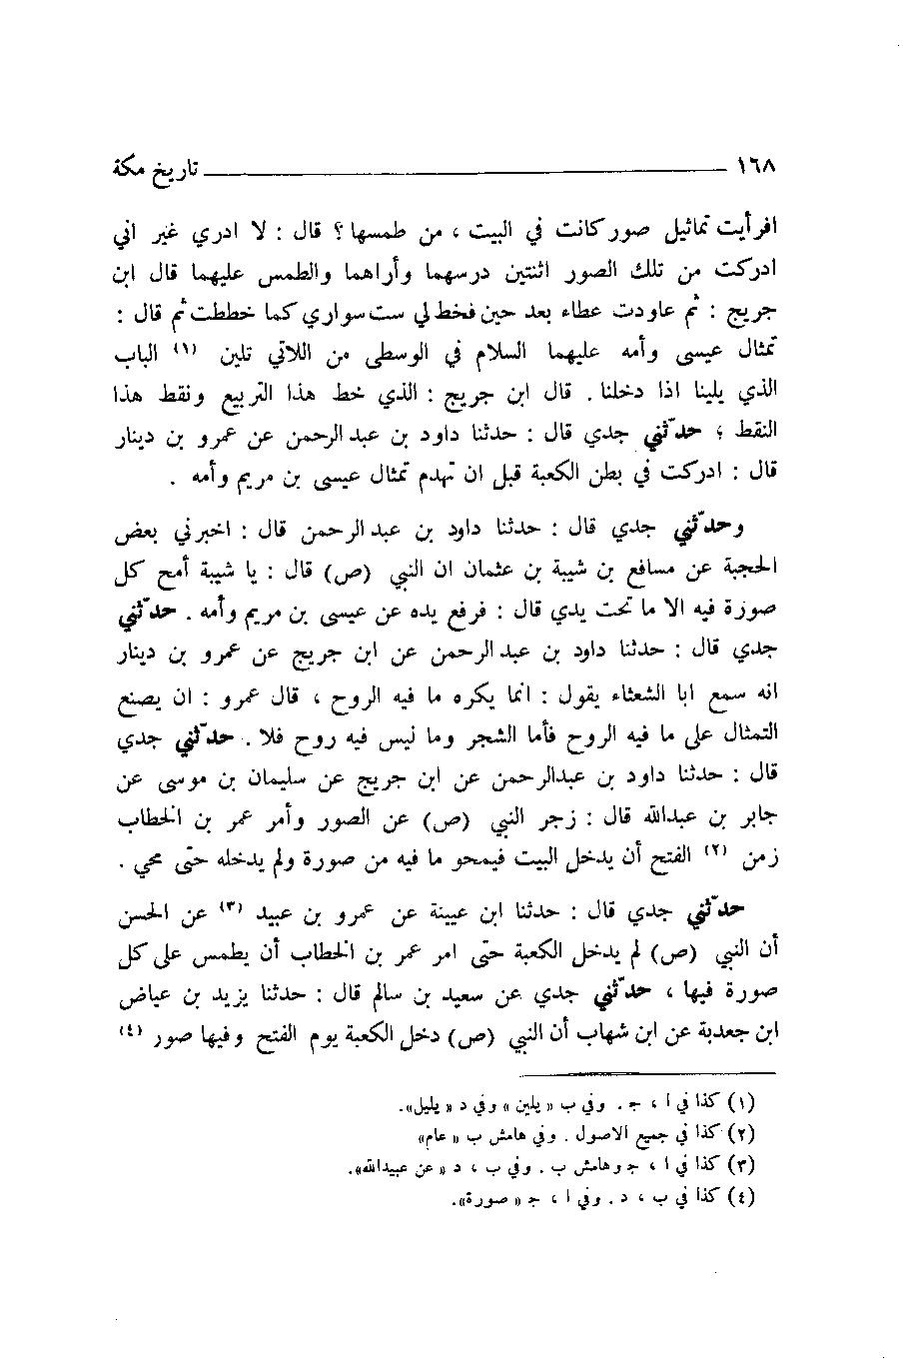 ١٦٨ تاريخ مكة
افرأيت تماثيل صور كانت في البيت ، من طمسها ؟ قال : لا ادري غير اني
ادركت من تلك الصور اثنتين درسهما وأراهما والطمس عليهما قال ابن
جريج : ثم عاودت عطاء بعد حين فخط لي ست سواري كما خططت ثم قال :
تمثال عيسى وأمه عليهما السلام في الوسطى من اللاتي تلين (١) الباب
الذي يلينا اذا دخلنا . قال ابن جريج : الذي خط هذا التربيع ونقط هذا
النقط ؛ حدّثني جدي قال : حدثنا داود بن عبد الرحمن عن عمرو بن دينار
قال : ادركت في بطن الكعبة قبل ان تهدم تمثال عيسى بن مريم وأمه .
وحدّثني جدي قال : حدثنا داود بن عبد الرحمن قال : اخبرني بعض
الحجبة عن مسافع بن شيبة بن عثمان ان النبي (ص) قال : يا شيبة أمح كل
صورة فيه الا ما تحت يدي قال : فرفع يده عن عيسى بن مريم وأمه . حدّثني
جدي قال : حدثنا داود بن عبد الرحمن عن ابن جريج عن عمرو بن دينار
انه سمع ابا الشعثاء يقول : انما يكره ما فيه الروح ، قال عمرو : ان يصنع
التمثال على ما فيه الروح فأما الشجر وما ليس فيه روح فلا . حدّثني جدي
قال : حدثنا داود بن عبدالرحمن عن ابن جريج عن سليمان بن موسى عن
جابر بن عبدالله قال : زجر النبي (ص) عن الصور وأمر عمر بن الخطاب
زمن (٢) الفتح أن يدخل البيت فيمحو ما فيه من صورة ولم يدخله حتى محي .
حدّثني جدي قال : حدثنا ابن عيينة عن عمرو بن عبيد (٣) عن الحسن
أن النبي (ص) لم يدخل الكعبة حتى امر عمر بن الخطاب أن يطمس على كل
صورة فيها ، حدّثني جدي عن سعيد بن سالم قال : حدثنا يزيد بن عياض
ابن جعدبة عن ابن شهاب أن النبي (ص) دخل الكعبة يوم الفتح وفيها صور (٤)
(١) كذا في ا ، ج . وفي ب « يلين » وفي د « يليل ».
(٢) كذا في جميع الاصول . وفي هامش ب « عام »
(٣) كذا في ا ، ج وهامش ب . وفي ب ، د « عن عبيدالله ».
(٤) كذا في ب ، د . وفي ا ، ج « صورة ».